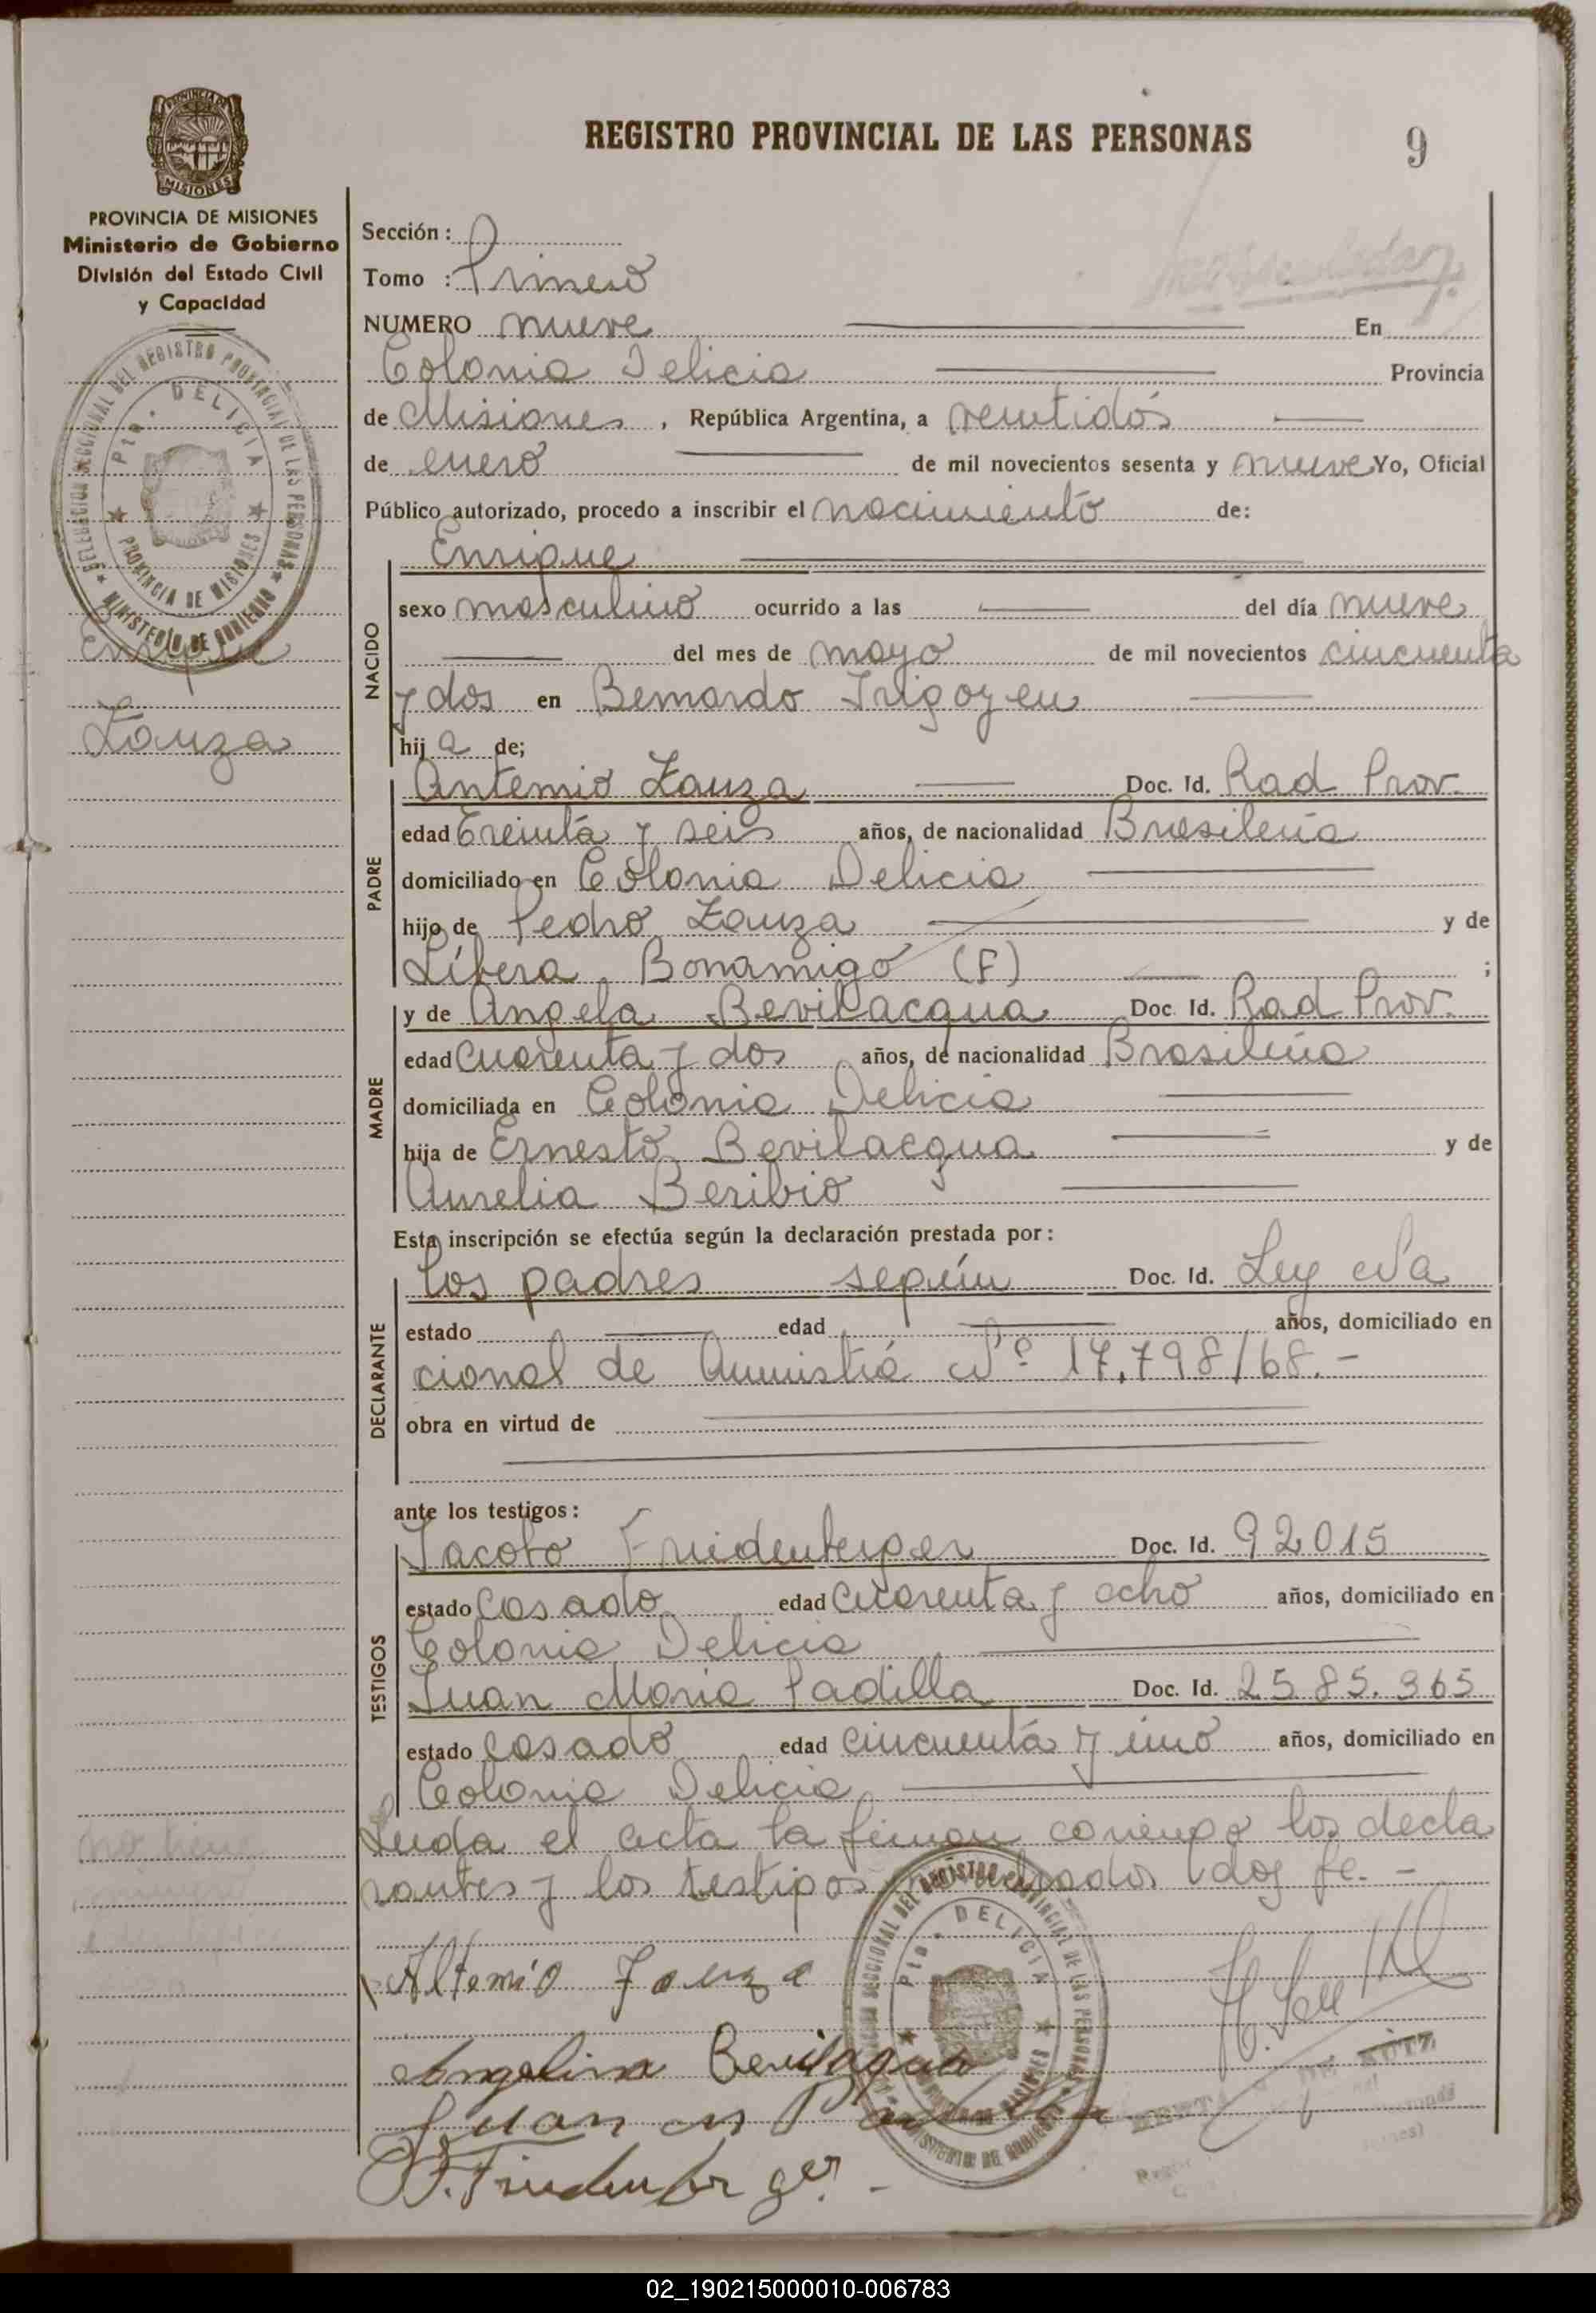 REGISTRO PROVINCIAL DE LAS PERSONAS
9
PROVINCIA DE MISIONES
MISIONES
PROVINCIA DE MISIONES
Ministerio de Gobierno
División del Estado Civil
y Capacidad
DELEGACION SECCIONAL DEL REGISTRO PROVINCIAL DE LAS PERSONAS
Pto. DELICIA
PROVINCIA DE MISIONES
MINISTERIO DE GOBIERNO
Enrique
Zauza
Sección :
Tomo : Primero
NUMERO nueve En
Colonia Delicia Provincia
de Misiones , República Argentina, a veintidós
de enero de mil novecientos sesenta y nueve Yo, Oficial
Público autorizado, procedo a inscribir el nacimiento de:
Enrique
NACIDO
sexo masculino ocurrido a las del día nueve
del mes de mayo de mil novecientos cincuenta
y dos en Bernardo Irigoyen
hij o de;
PADRE
Antemio Zauza Doc. Id. Rad Prov.
edad treinta y seis años, de nacionalidad Brasileña
domiciliado en Colonia Delicia
hijo de Pedro Zauza y de
Líbera Bonamigo (F) ;
MADRE
y de Angela Bevilacqua Doc. Id. Rad Prov.
edad cuarenta y dos años, de nacionalidad Brasileña
domiciliada en Colonia Delicia
hija de Ernesto Bevilacqua y de
Aurelia Beribio
Esta inscripción se efectúa según la declaración prestada por :
DECLARANTE
los padres según Doc. Id. Ley Na
estado edad años, domiciliado en
cional de Amnistía Nº 17.798/68.-
obra en virtud de
ante los testigos :
TESTIGOS
Jacobo Fruidenberger Doc. Id. 92.015
estado casado edad cuarenta y ocho años, domiciliado en
Colonia Delicia
Juan Maria Padilla Doc. Id. 2585.365
estado casado edad cincuenta y uno años, domiciliado en
Colonia Delicia
Leida el acta la firman conmigo los decla
rantes y los testigos doy fe.-
no tiene
Altemio Zauza
Angelina Bevilaqua
Juan M Padilla
J. Friedenberger.-
DELEGACION SECCIONAL DEL REGISTRO PROVINCIAL DE LAS PERSONAS
Pto. DELICIA
PROVINCIA DE MISIONES
MINISTERIO DE GOBIERNO
02_190215000010-006783